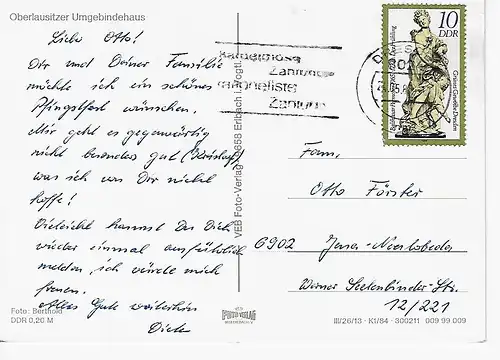 Oberlausitzer Umgebindehaus
Liebe Otto!
Dir und Deiner Familie
möchte ich ein schönes
Pfingstfest wünschen.
Mir geht es gegenwärtig
nicht besonders gut
was ich von Dir nicht
hoffe!
Vielleicht kannst Du Dich
wieder einmal ausführlich
melden, ich würde mich
freuen.
Alles Gute weiterhin
Foto: Berthold
DDR 0,20 M
VEB Foto-Verlag 9658 Erlbach i. Vogtl.
Zahnpflege
Zahnium
10
DDR
Grünes Gewölbe Dresden
Fam.
Otto Förster
6902 Jena-Neulobeda
Werner Seelenbinder-Str.
12/221
FOTO VERLAG
III/26/13 · K1/84 · 300211 009 99 009